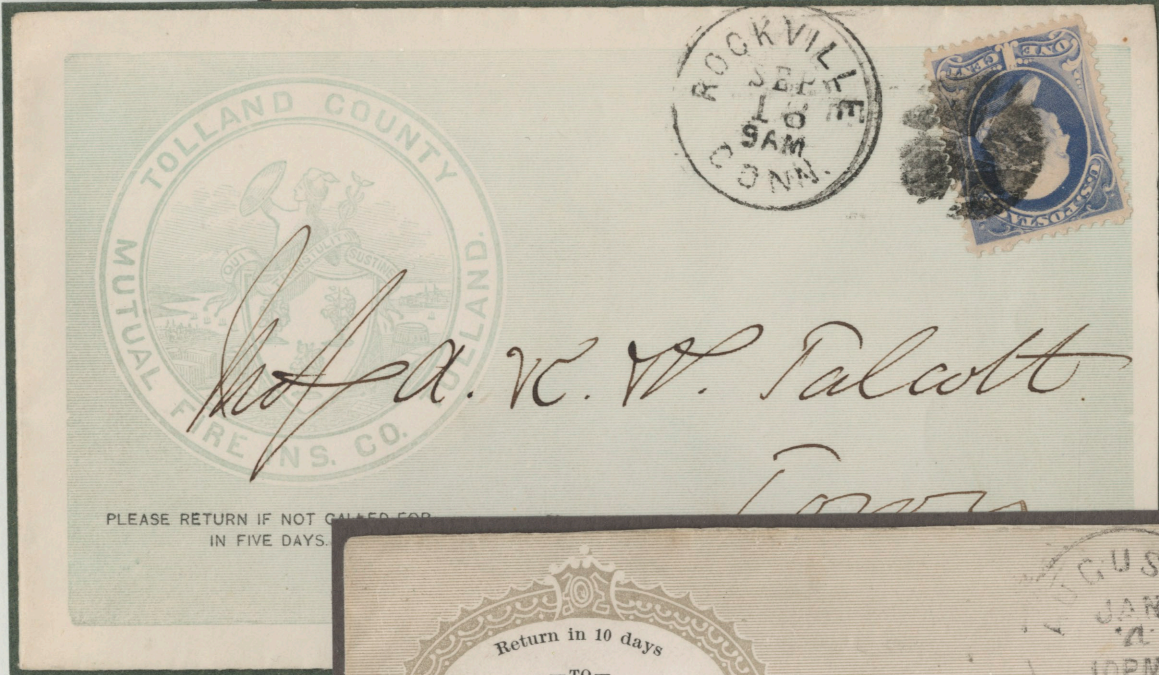 TOLLAND COUNTY
MUTUAL FIRE INS. CO. TOLLAND.
QUI TRANSTULIT SUSTINET
ROCKVILLE
SEP
18
9AM
CONN.
ONE CENT
U.S. POSTAGE
A. K. W. Talcott.
Town
PLEASE RETURN IF NOT CALLED FOR
IN FIVE DAYS.
Return in 10 days
—TO—
AUGUS
JAN
10PM